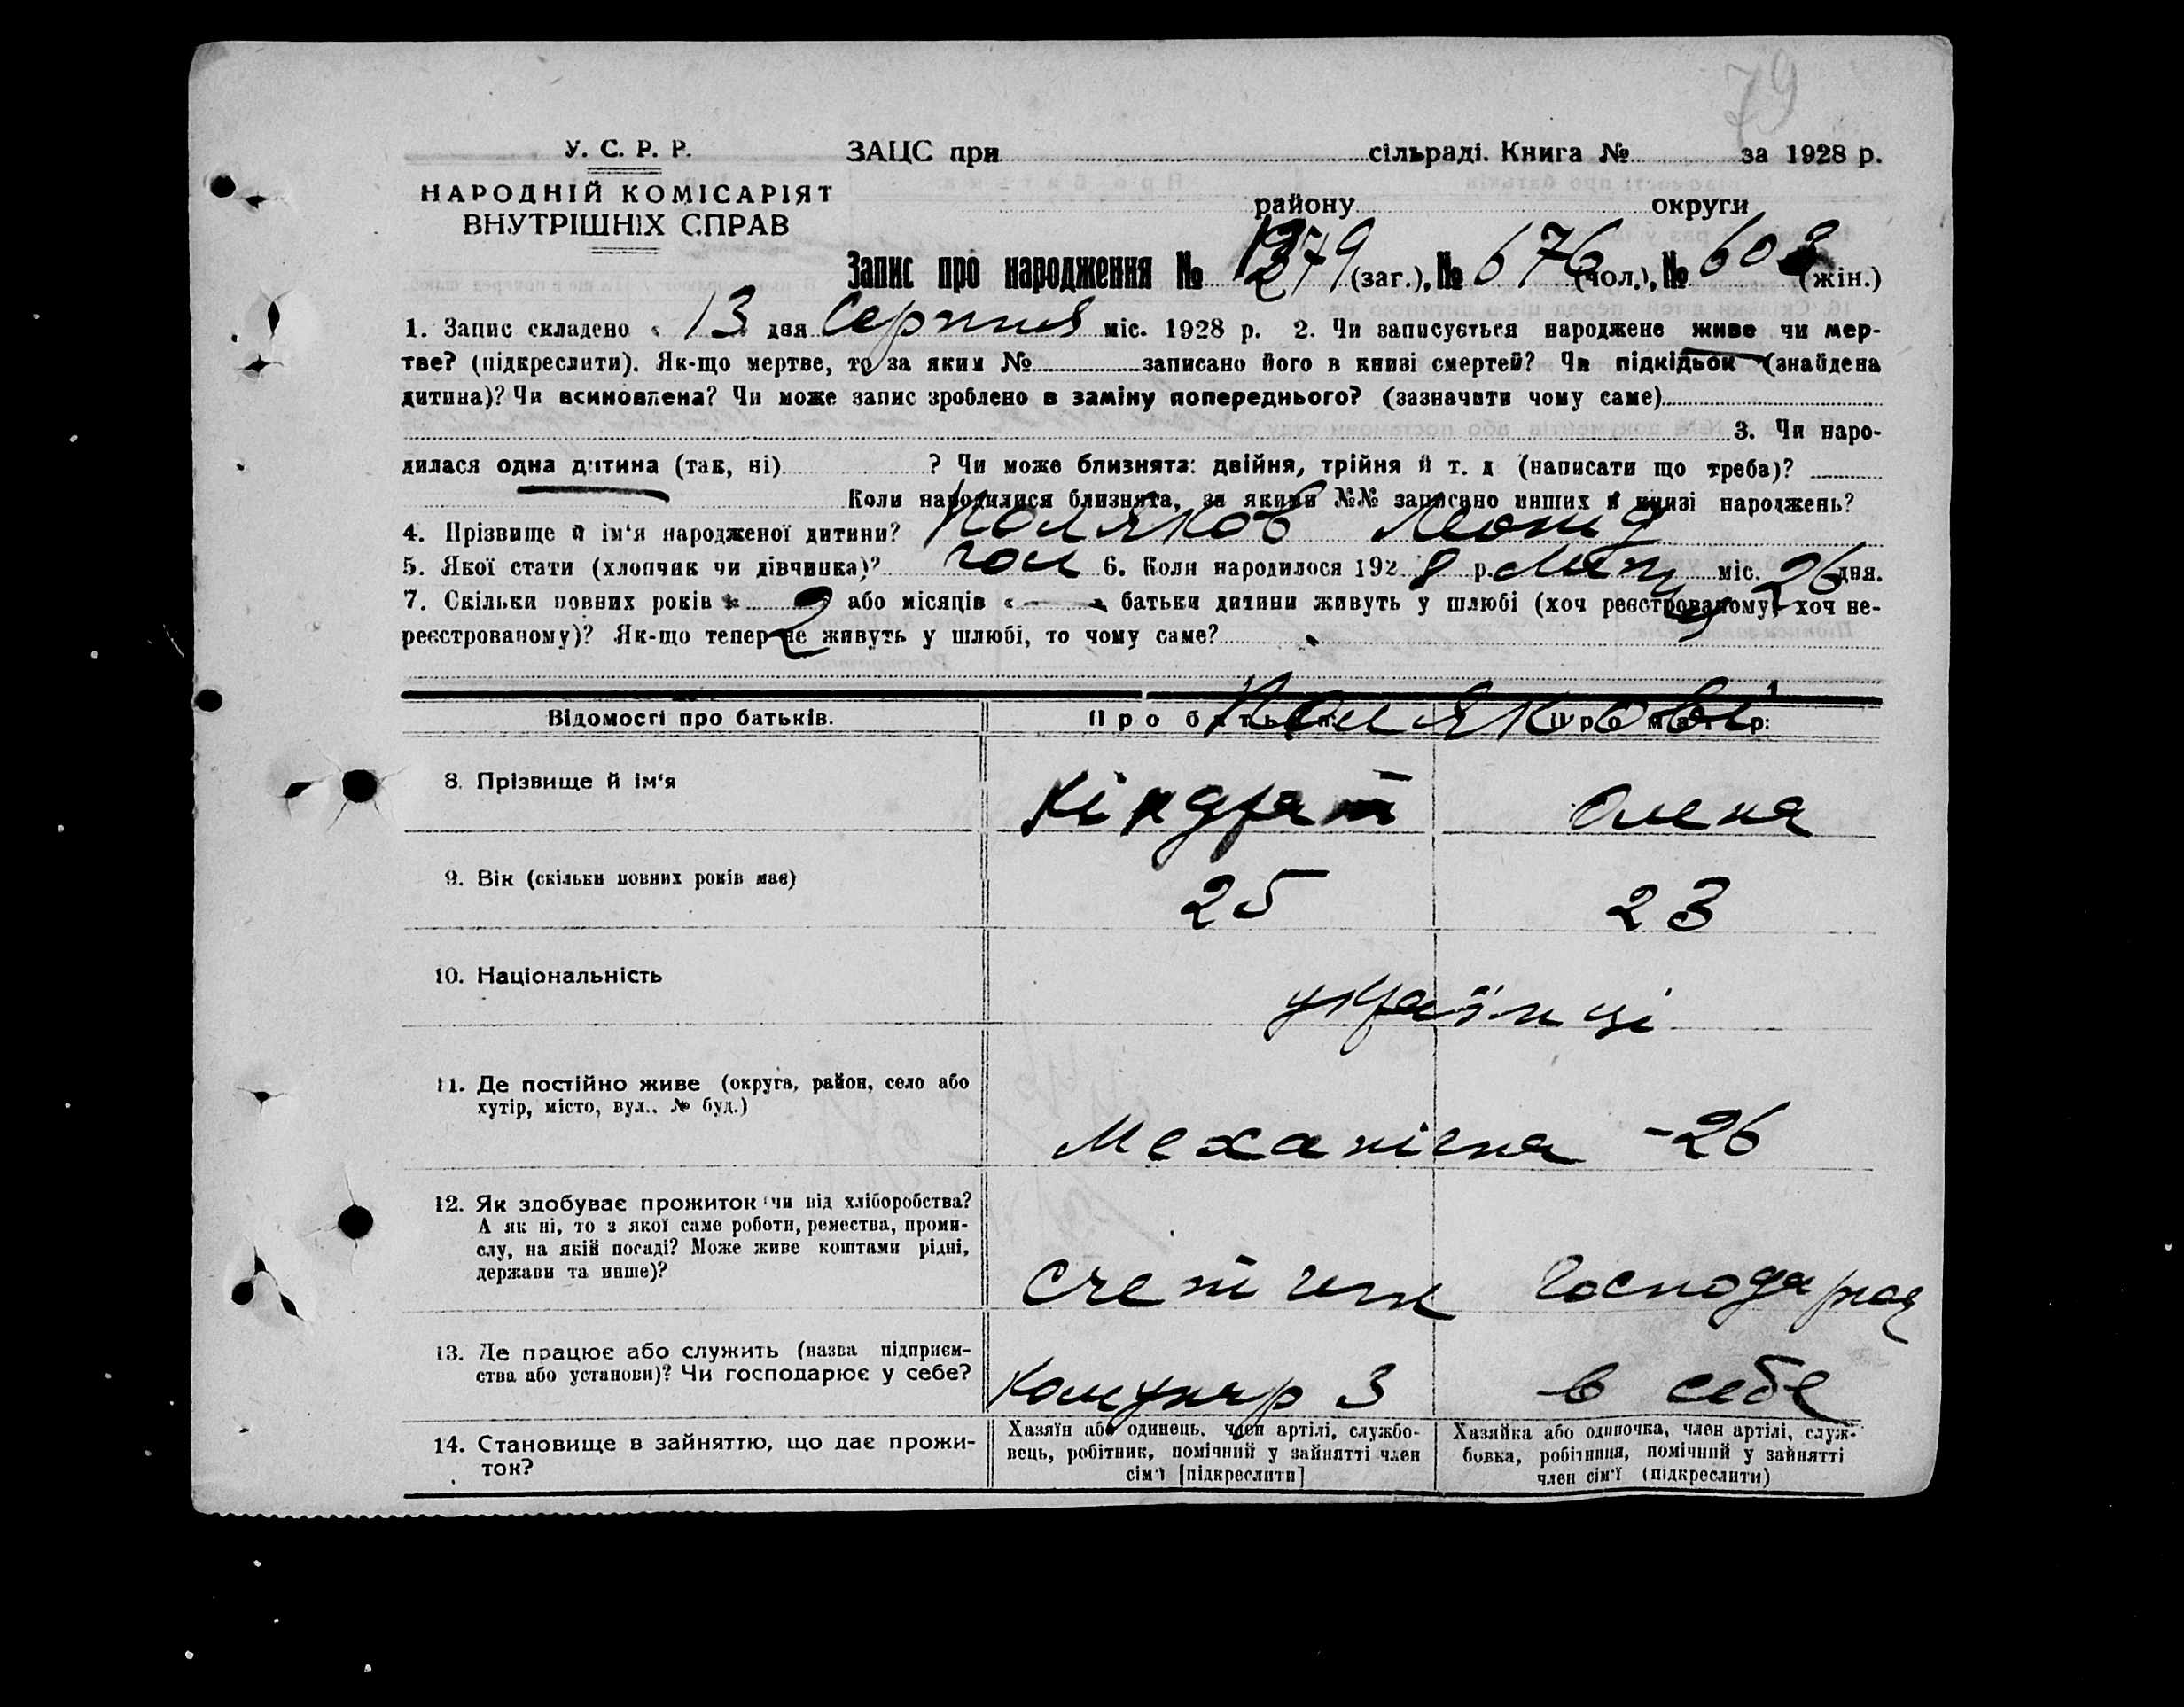 79
У. С. Р. Р.
ЗАЦС при сільраді. Книга № за 1928 р.
НАРОДНІЙ КОМІСАРІЯТ
ВНУТРІШНІХ СПРАВ
району округи
Запис про народження № 1279 (заг.), № 676 (чол.), № 603 (жін.)
1. Запис складено « 13 дня Серпня міс. 1928 р. 2. Чи записується народжене живе чи мер-
тве? (підкреслити). Як-що мертве, то за яким № записано його в книзі смертей? Чи підкідьок (знайдена
дитина)? Чи всиновлена? Чи може запис зроблено в заміну попереднього? (зазначити чому саме)
3. Чи наро-
дилася одна дитина (так, ні) ? Чи може близнята: двійня, трійня й т. д (написати що треба)?
Коли народилися близнята, за якими №№ записано инших в книзі народжень?
4. Прізвище й ім‘я народженої дитини? Поляков Леонід
5. Якої стати (хлопчик чи дівчинка)? чол 6. Коли народилося 1928 р. міс. 26 дня.
7. Скільки повних років « 2 або місяців « — » батьки дитини живуть у шлюбі (хоч реєстрованому, хоч не-
реєстрованому)? Як-що тепер не живуть у шлюбі, то чому саме?
Полякови
Відомості про батьків. Про батька: Про матір:
8. Прізвище й ім‘я Кіндрат Олена
9. Вік (скільки повних років має) 25 23
10. Національність українці
11. Де постійно живе (округа, район, село або
хутір, місто, вул., № буд.)
Механічна - 26
12. Як здобуває прожиток чи від хліборобства?
А як ні, то з якої саме роботи, ремества, проми-
слу, на якій посаді? Може живе коштами рідні,
держави та инше)?
Счетчик Господарка
13. Де працює або служить (назва підприєм-
ства або установи)? Чи господарює у себе?
Комунар 3 в себе
14. Становище в зайняттю, що дає прожи-
ток?
Хазяїн або одинець, член артілі, службо-
вець, робітник, помічний у зайнятті член
сім‘ї [підкреслити]
Хазяйка або одиночка, член артілі, служ-
бовка, робітниця, помічний у зайнятті
член сім‘ї (підкреслити)